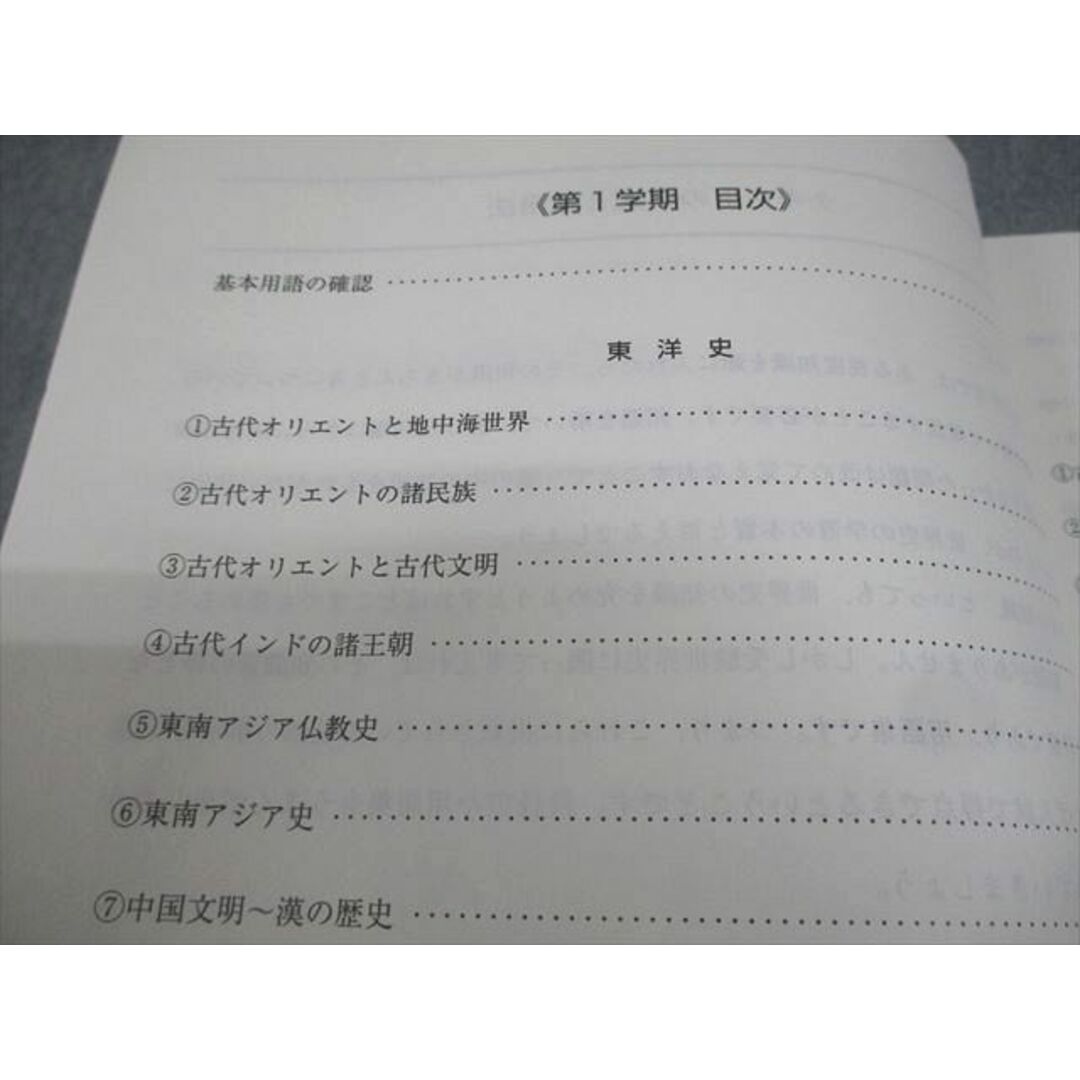 《第1学期 目次》
基本用語の確認
東洋史
①古代オリエントと地中海世界
②古代オリエントの諸民族
③古代オリエントと古代文明
④古代インドの諸王朝
⑤東南アジア仏教史
⑥東南アジア史
⑦中国文明~漢の歴史